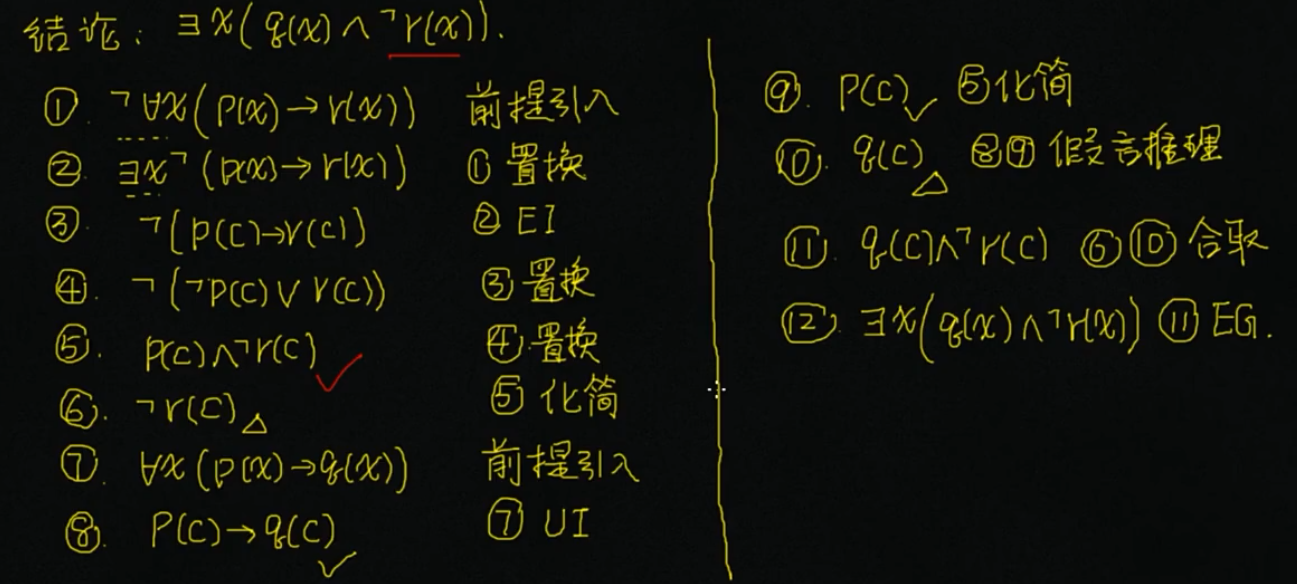 结论: ∃x(q(x)∧¬r(x)).
① ¬∀x(p(x)→r(x)) 前提引入
② ∃x¬(p(x)→r(x)) ①置换
③ ¬(p(c)→r(c)) ②EI
④ ¬(¬p(c)∨r(c)) ③置换
⑤ p(c)∧¬r(c) ④置换
⑥ ¬r(c) ⑤化简
⑦ ∀x(p(x)→q(x)) 前提引入
⑧ p(c)→q(c) ⑦UI
⑨ p(c) ⑤化简
⑩ q(c) ⑧⑨假言推理
⑪ q(c)∧¬r(c) ⑥⑩合取
⑫ ∃x(q(x)∧¬r(x)) ⑪EG.